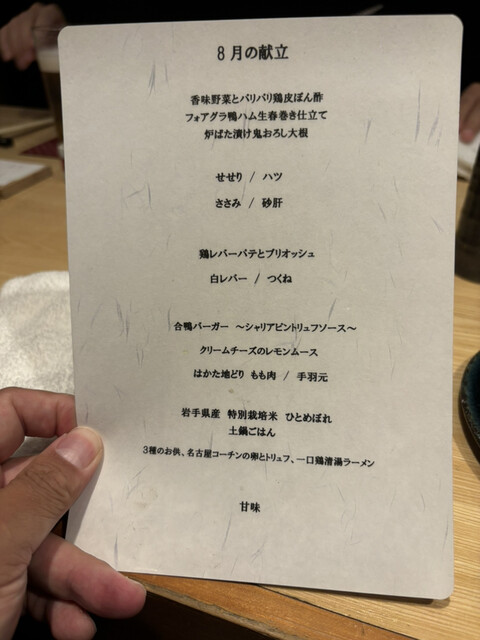 8月の献立
香味野菜とパリパリ鶏皮ぽん酢
フォアグラ鴨ハム生春巻き仕立て
炉ばた漬け鬼おろし大根
せせり / ハツ
ささみ / 砂肝
鶏レバーパテとブリオッシュ
白レバー / つくね
合鴨バーガー ～シャリアピントリュフソース～
クリームチーズのレモンムース
はかた地どり もも肉 / 手羽元
岩手県産 特別栽培米 ひとめぼれ
土鍋ごはん
3種のお供、名古屋コーチンの卵とトリュフ、一口鶏清湯ラーメン
甘味